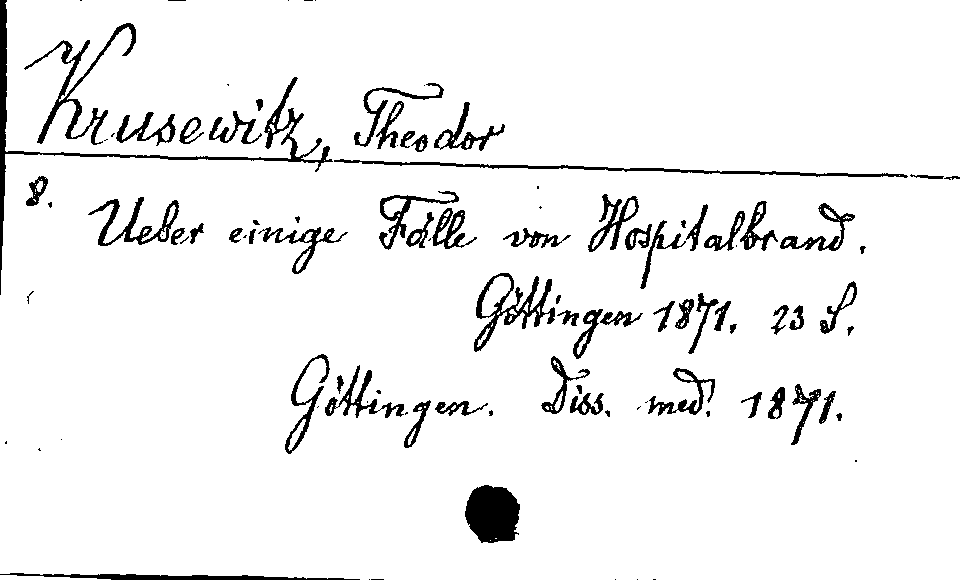 Krusewitz, Theodor
8.
Ueber einige Fälle von Hospitalbrand.
Göttingen 1871. 23 S.
Göttingen. Diss. med. 1871.